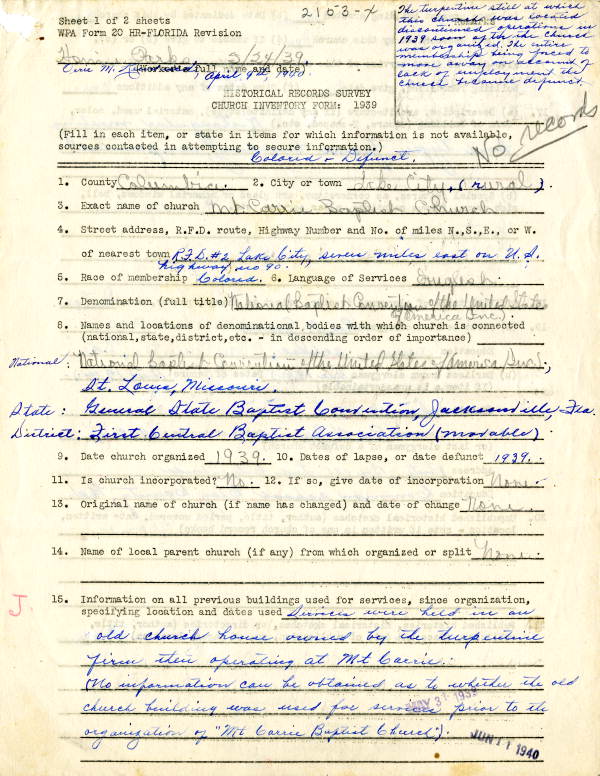 Sheet 1 of 2 sheets
2153-4
WPA Form 20 HR-FLORIDA Revision
The turpentine still at which
this church was located
discontinued operations in
1939 soon after the church
was organized. The entire
membership being forced to
move away on account of
lack of employment the
church became defunct.
3/24/39
(Worker's full name and date)
April 9th, 1940
HISTORICAL RECORDS SURVEY
CHURCH INVENTORY FORM: 1939
No records
(Fill in each item, or state in items for which information is not available,
sources contacted in attempting to secure information.)
Colored - Defunct.
1. County Columbia. 2. City or town Lake City, (rural).
3. Exact name of church Mt Carrie Baptist Church
4. Street address, R.F.D. route, Highway Number and No. of miles N.,S.,E., or W.
of nearest town R.F.D. #2, Lake City, seven miles east on U.S.
highway no 90.
5. Race of membership Colored. 6. Language of Services English.
7. Denomination (full title) National Baptist Convention of the United States
of America (Inc.).
8. Names and locations of denominational bodies with which church is connected
(national,state,district,etc. - in descending order of importance)
National: National Baptist Convention of the United States of America (Inc.),
St. Louis, Missouri.
State: General State Baptist Convention, Jacksonville, Fla.
District: First Central Baptist Association (movable).
9. Date church organized 1939. 10. Dates of lapse, or date defunct 1939.
11. Is church incorporated? No. 12. If so, give date of incorporation None.
13. Original name of church (if name has changed) and date of change None.
14. Name of local parent church (if any) from which organized or split None.
J.
15. Information on all previous buildings used for services, since organization,
specifying location and dates used Services were held in an
old church house owned by the turpentine
firm then operating at Mt Carrie.:
(No information can be obtained as to whether the old
church building was used for services prior to the
organization of "Mt Carrie Baptist Church").
MAY 31 1939
JUN 11 1940